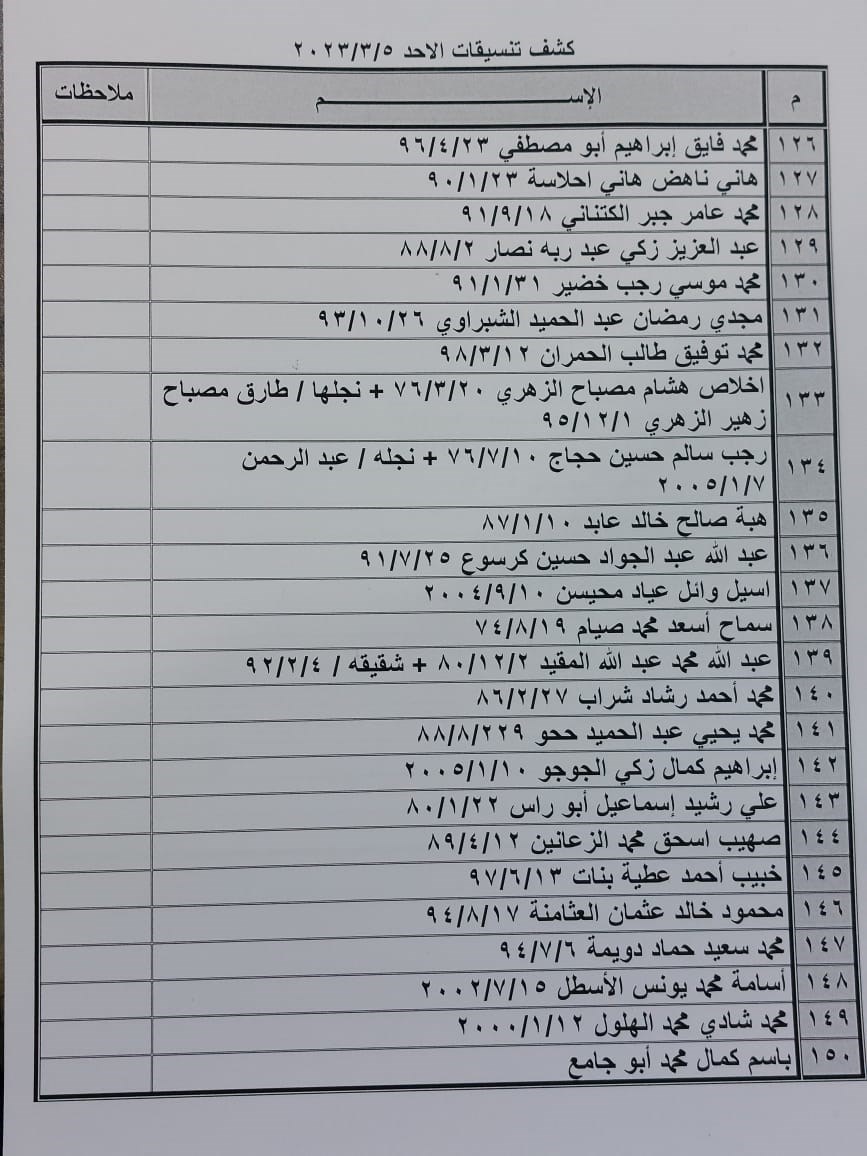 كشف تنسيقات الاحد ٢٠٢٣/٣/٥
م الإســـــــم ملاحظات
١٢٦ محمد فايق إبراهيم أبو مصطفي ٩٦/٤/٢٣
١٢٧ هاني ناهض هاني احلاسة ٩٠/١/٢٣
١٢٨ محمد عامر جبر الكتناني ٩١/٩/١٨
١٢٩ عبد العزيز زكي عبد ربه نصار ٨٨/٨/٢
١٣٠ محمد موسي رجب خضير ٩١/١/٣١
١٣١ مجدي رمضان عبد الحميد الشبراوي ٩٣/١٠/٢٦
١٣٢ محمد توفيق طالب الحمران ٩٨/٣/١٢
١٣٣ اخلاص هشام مصباح الزهري ٧٦/٣/٢٠ + نجلها / طارق مصباح
زهير الزهري ٩٥/١٢/١
١٣٤ رجب سالم حسين حجاج ٧٦/٧/١٠ + نجله / عبد الرحمن
٢٠٠٥/١/٧
١٣٥ هبة صالح خالد عابد ٨٧/١/١٠
١٣٦ عبد الله عبد الجواد حسين كرسوع ٩١/٧/٢٥
١٣٧ اسيل وائل عياد محيسن ٢٠٠٤/٩/١٠
١٣٨ سماح أسعد محمد صيام ٧٤/٨/١٩
١٣٩ عبد الله محمد عبد الله المقيد ٨٠/١٢/٢ + شقيقه / ٩٢/٢/٤
١٤٠ محمد أحمد رشاد شراب ٨٦/٢/٢٧
١٤١ محمد يحيي عبد الحميد ححو ٨٨/٨/٢٢٩
١٤٢ إبراهيم كمال زكي الجوجو ٢٠٠٥/١/١٠
١٤٣ علي رشيد إسماعيل أبو راس ٨٠/١/٢٢
١٤٤ صهيب اسحق محمد الزعانين ٨٩/٤/١٢
١٤٥ خبيب أحمد عطية بنات ٩٧/٦/١٣
١٤٦ محمود خالد عثمان العثامنة ٩٤/٨/١٧
١٤٧ محمد سعيد حماد دويمة ٩٤/٧/٦
١٤٨ أسامة محمد يونس الأسطل ٢٠٠٢/٧/١٥
١٤٩ محمد شادي محمد الهلول ٢٠٠٠/١/١٢
١٥٠ باسم كمال محمد أبو جامع